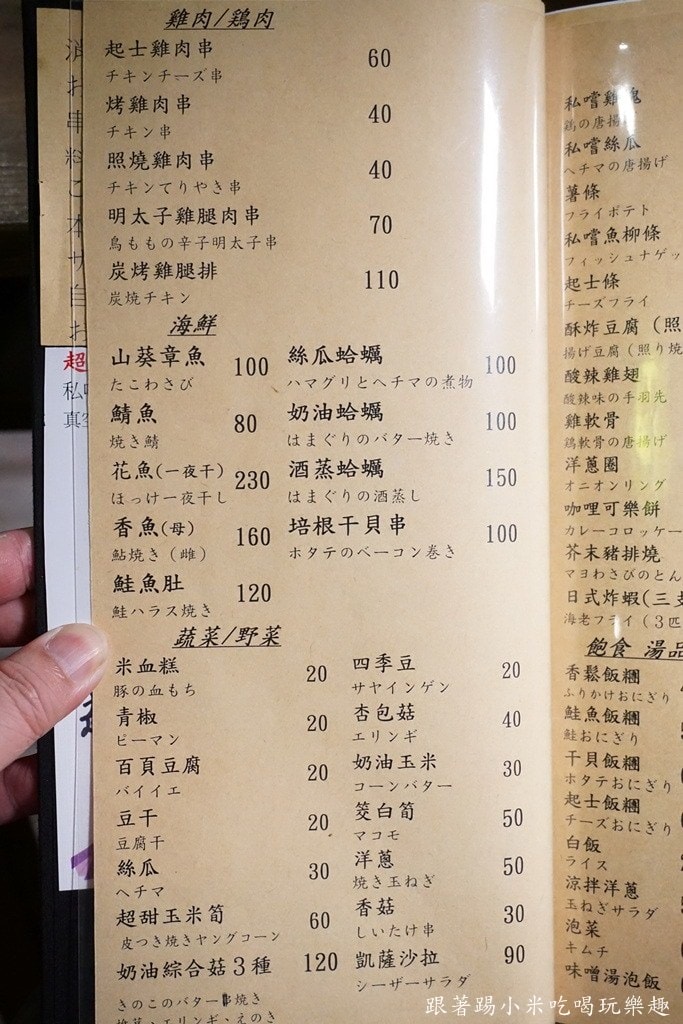 雞肉/鶏肉
起士雞肉串 60
チキンチーズ串
烤雞肉串 40
チキン串
照燒雞肉串 40
チキンてりやき串
明太子雞腿肉串 70
鳥ももの辛子明太子串
炭烤雞腿排 110
炭焼チキン
海鮮
山葵章魚 100
たこわさび
鯖魚 80
焼き鯖
花魚(一夜干) 230
ほっけ一夜干し
香魚(母) 160
鮎焼き(雌)
鮭魚肚 120
鮭ハラス焼き
絲瓜蛤蠣 100
ハマグリとヘチマの煮物
奶油蛤蠣 100
はまぐりのバター焼き
酒蒸蛤蠣 150
はまぐりの酒蒸し
培根干貝串 100
ホタテのベーコン巻き
蔬菜/野菜
米血糕 20
豚の血もち
青椒 20
ピーマン
百頁豆腐 20
バイイエ
豆干 20
豆腐干
絲瓜 30
ヘチマ
超甜玉米筍 60
皮つき焼きヤングコーン
奶油綜合菇3種 120
きのこのバター串焼き
四季豆 20
サヤインゲン
杏包菇 40
エリンギ
奶油玉米 30
コーンバター
筊白筍 50
マコモ
洋蔥 50
焼き玉ねぎ
香菇 30
しいたけ串
凱薩沙拉 90
シーザーサラダ
私嚐雞塊
鶏の唐揚
私嚐絲瓜
ヘチマの唐揚げ
薯條
フライポテト
私嚐魚柳條
フィッシュナゲッ
起士條
チーズフライ
酥炸豆腐(照
揚げ豆腐(照り焼
酸辣雞翅
酸辣味の手羽先
雞軟骨
鶏軟骨の唐揚げ
洋蔥圈
オニオンリング
咖哩可樂餅
カレーコロッケー
芥末豬排燒
マヨわさびのとん
日式炸蝦(三支
海老フライ(3匹
飽食 湯品
香鬆飯糰
ふりかけおにぎり
鮭魚飯糰
鮭おにぎり
干貝飯糰
ホタテおにぎり
起士飯糰
チーズおにぎり
白飯
ライス
涼拌洋蔥
玉ねぎサラダ
泡菜
キムチ
味噌湯泡飯
跟著踢小米吃喝玩樂趣